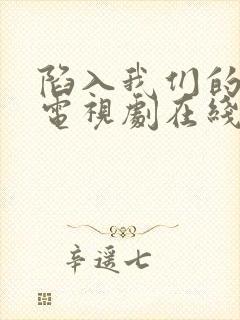 陷入我们的
電視劇在綫
辛遥七